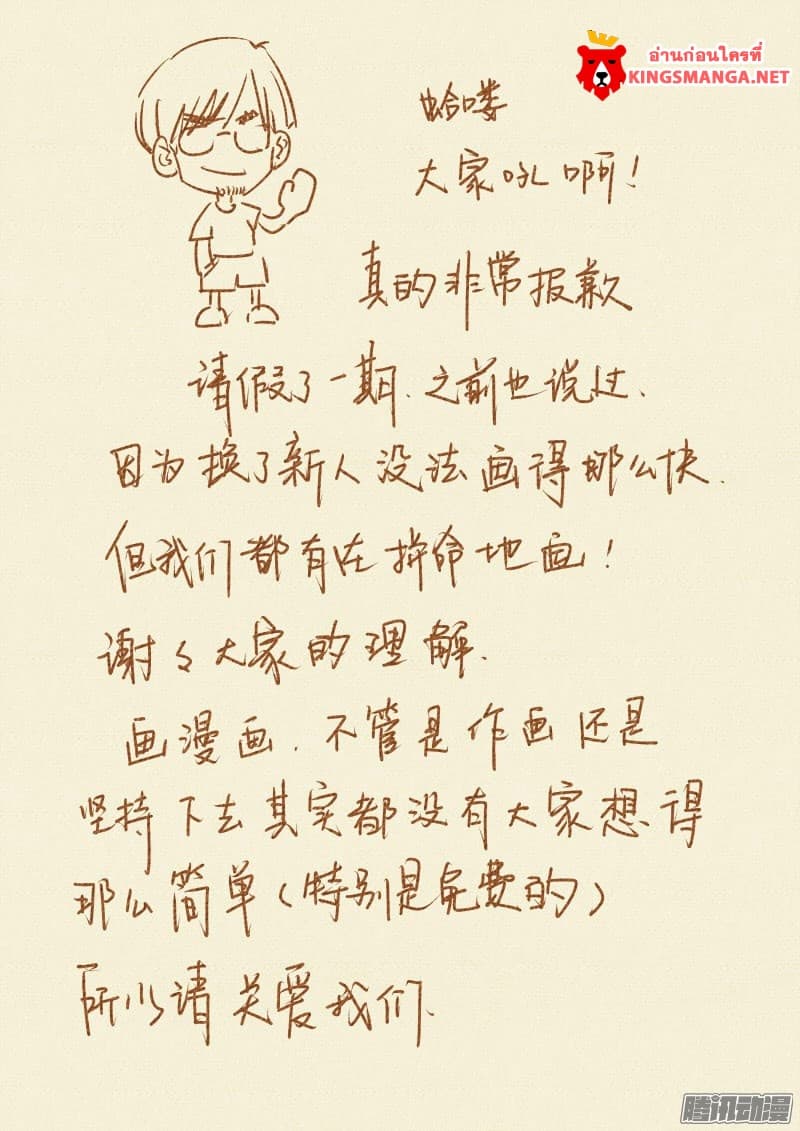 อ่านก่อนใครที่
KINGSMANGA.NET
蛤喽
大家吼啊!
真的非常报歉
请假了一期.之前也说过.
因为换了新人没法画得那么快.
但我们都有在拼命地画!
谢々大家的理解.
画漫画.不管是作画还是
坚持下去其实都没有大家想得
那么简单(特别是免费的)
所以请关爱我们.
腾讯动漫